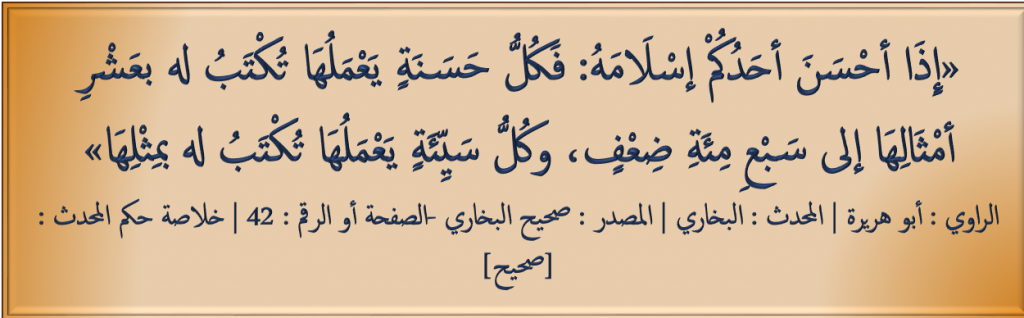 «إِذَا أحْسَنَ أحَدُكُمْ إسْلَامَهُ: فَكُلُّ حَسَنَةٍ يَعْمَلُهَا تُكْتَبُ له بعَشْرِ
أمْثَالِهَا إلى سَبْعِ مِئَةِ ضِعْفٍ، وكُلُّ سَيِّئَةٍ يَعْمَلُهَا تُكْتَبُ له بمِثْلِهَا»
الراوي : أبو هريرة | المحدث : البخاري | المصدر : صحيح البخاري -الصفحة أو الرقم : 42 | خلاصة حكم المحدث :
[صحيح]